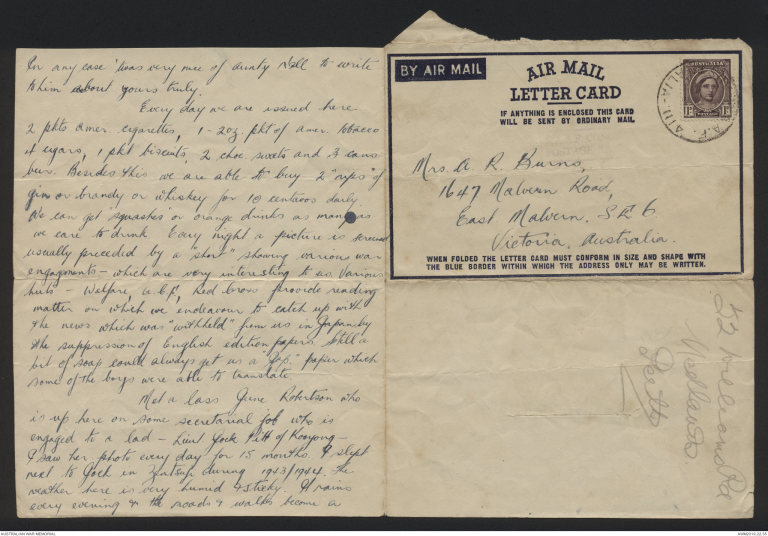 In any case 'twas very nice of aunty Nell to write
to him about yours truly.
Every day we are issued here
2 pkts amer. cigarettes, 1 - 2oz. pkt of amer. tobacco
4 cigars, 1 pkt biscuits, 2 choc. sweets and 3 cans
beer. Besides this we are able to buy 2 "nips" of
gin or brandy or whiskey for 10 centavos daily.
We can get squashes or orange drinks as many as
we care to drink. Every night a picture is screened
usually preceded by a "short" showing various war
engagements - which are very interesting to us. Various
huts - Welfare, A.C.F., Red Cross provide reading
matter on which we endeavour to catch up with
the news which was "withheld" from us in Japan by
the suppression of English edition papers. Still a
bit of soap could always get us a "Jap." paper which
some of the boys were able to translate
Met a lass June Robertson who
is up here on some secretarial job who is
engaged to a lad - Lieut Jock Pitt of Kooyong -
I saw her photo every day for 15 months. I slept
next to Jock in Zentsuji during 1943/1944. The
weather here is very humid & sticky. It rains
every evening & the roads & walks become a
BY AIR MAIL
AIR MAIL
LETTER CARD
IF ANYTHING IS ENCLOSED THIS CARD
WILL BE SENT BY ORDINARY MAIL
AUSTRALIA
Mrs. A. R. Burns,
1647 Malvern Road,
East Malvern. S.E. 6
Victoria. Australia.
WHEN FOLDED THE LETTER CARD MUST CONFORM IN SIZE AND SHAPE WITH
THE BLUE BORDER WITHIN WHICH THE ADDRESS ONLY MAY BE WRITTEN.
52 Williams Rd
Nedlands
Perth
AUSTRALIAN WAR MEMORIAL
AWM2019.22.55